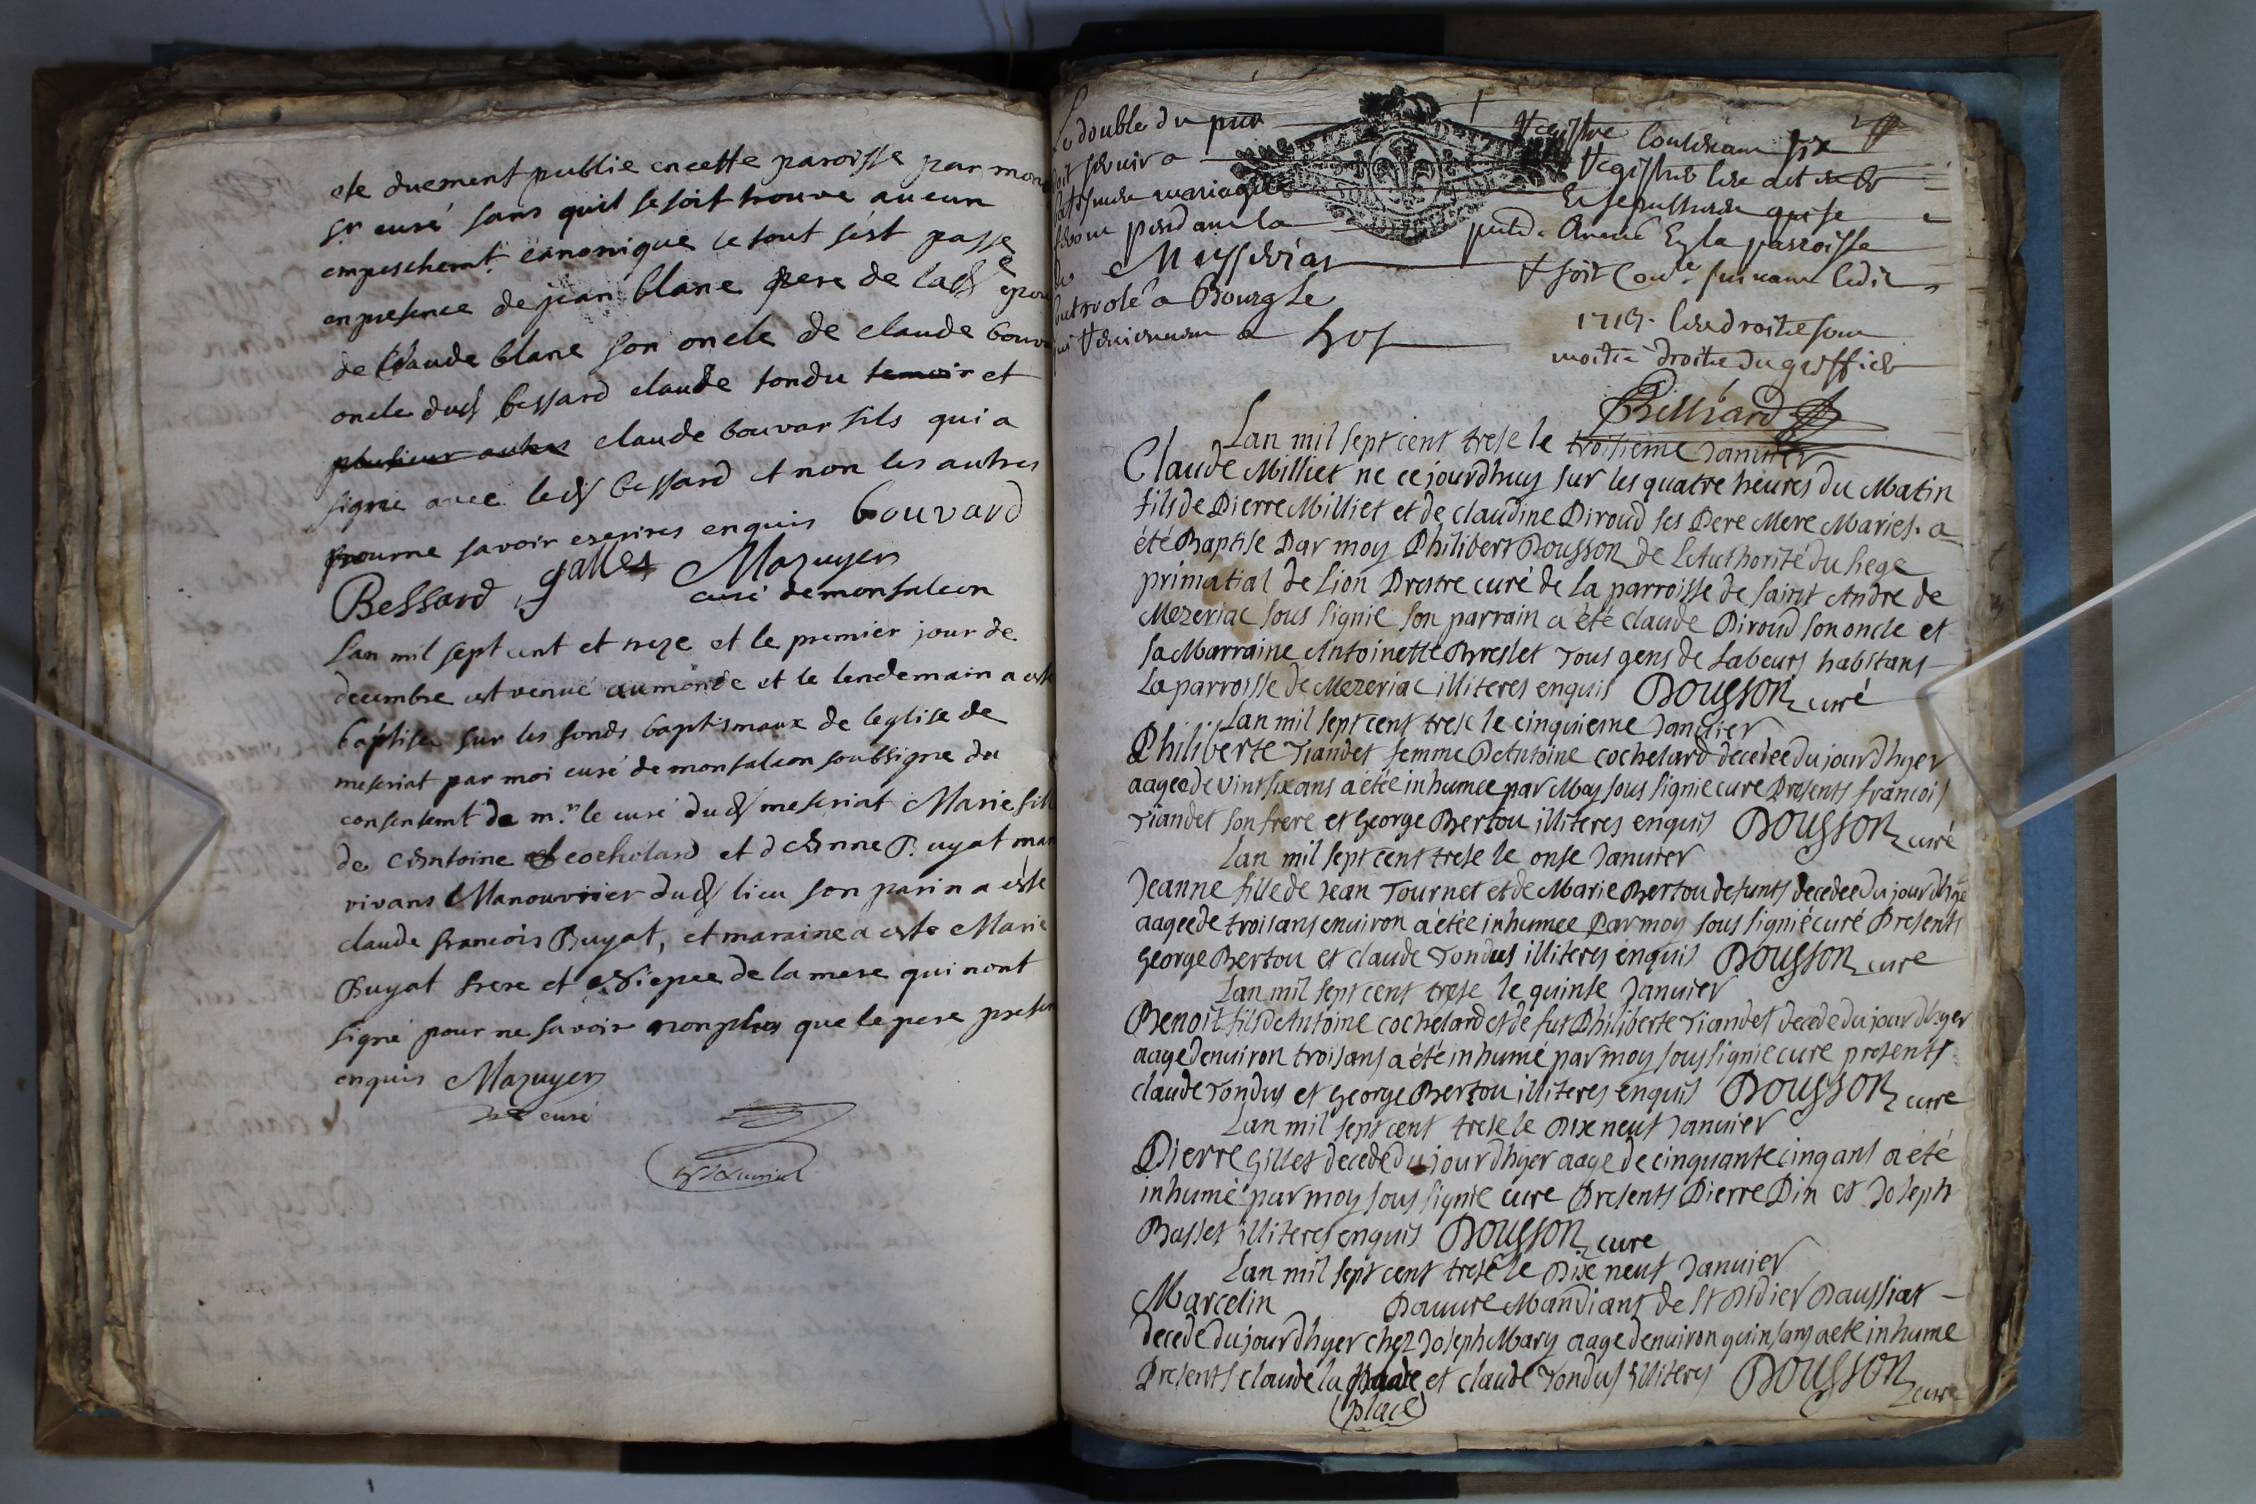 ete duement publie en cette paroisse par mon
sr curé sans quil se soit trouve aucun
empeschemt canonique le tout s'est passé
en presence de jean blanc pere de lad epou
de Claude blanc son oncle de claude bouva
oncle dud bessard claude tondu temoir et
plusieur autres claude bouvar fils qui a
signe avec led bessard et non les autres
pour ne savoir escrires enquis bouvard
Bessard galles Mazuyer
curé de monfalcon
Lan mil sept cent et treze et le premier jour de
decembre est venue au monde et le lendemain a esté
baptisée sur les fonds baptismaux de leglise de
meseriat par moi curé de monfalcon soubsigne du
consentemt de m.r le curé dud meseriat Marie fill
de Antoine cochelard et d Anne Buyat mar
vivans Manouvrier dud lieu son parin a esté
claude francois Buyat, et maraine a esté Marie
Buyat frere et de la mere qui nont
signé pour ne savoir non plus que le pere presen
enquis Mazuyer
curé
Le double du
servir a
mariages
pendant la
de Messeria
a Bourg le
a
Registre contenant six
Registre les actes de
et sepulture qui se
en la parroisse
suivant ledit
1713. les droits sont
moitié droits du greffier
Billiard
Lan mil sept cent trese le troisieme Januier
Claude Milliet ne ce jourdhuy sur les quatre heures du Matin
fils de Pierre Milliet et de claudine Piroud ses Pere Mere Maries. a
été Baptise Par moy Philibert Dousson de L'Authorité du siege
primatial de Lion Prestre curé de la parroisse de saint Andre de
Mezeriac sous signie son parrain a été claude Piroud son oncle et
sa Marraine Antoinette Breslet Tous gens de Labeurs habitans
La parroisse de Mezeriac illiteres enquis Dousson curé
Lan mil sept cent trese le cinquieme Januier
Philiberte Tiandet femme D'Antoine cochelard decedée du jour dhyer
aagee de vint six ans a étée inhumee par Moy sous signie cure Presents francois
Tiandet son frere et George Bertou illiteres enquis Dousson curé
Lan mil sept cent trese le onse Januier
Jeanne fille de Jean Tournet et de Marie Bertou defunts decedee du jour dhyé
aagee de trois ans enuiron a étée inhumee Par moy sous signié curé Presents
George Bertou et claude Tondus illiteres enquis Dousson cure
Lan mil sept cent trese le quinse Januier
Benoit fils d'Antoine cochelard et de fut Philiberte Tiandet decedé du jour dhyer
aagé denuiron trois ans a été inhumé par moy sous signie cure presents
claude Tondus et George Bertou illiteres enquis Dousson cure
Lan mil sept cent trese le Dix neuf Januier
Pierre Gillet decedé du jour dhyer aage de cinquante cinq ans a été
inhumé par moy sous signie cure Presents Pierre Pin et Joseph
Basset illiteres enquis Dousson cure
Lan mil sept cent trese le Dix neuf Januier
Marcelin Pauure Mandiant de St Didier Daussiat
decede du jour dhyer chez Joseph Mary aage denuiron quinse ans a ete inhume
Presents claude la et claude Tondus illiteres Dousson cure
(place)